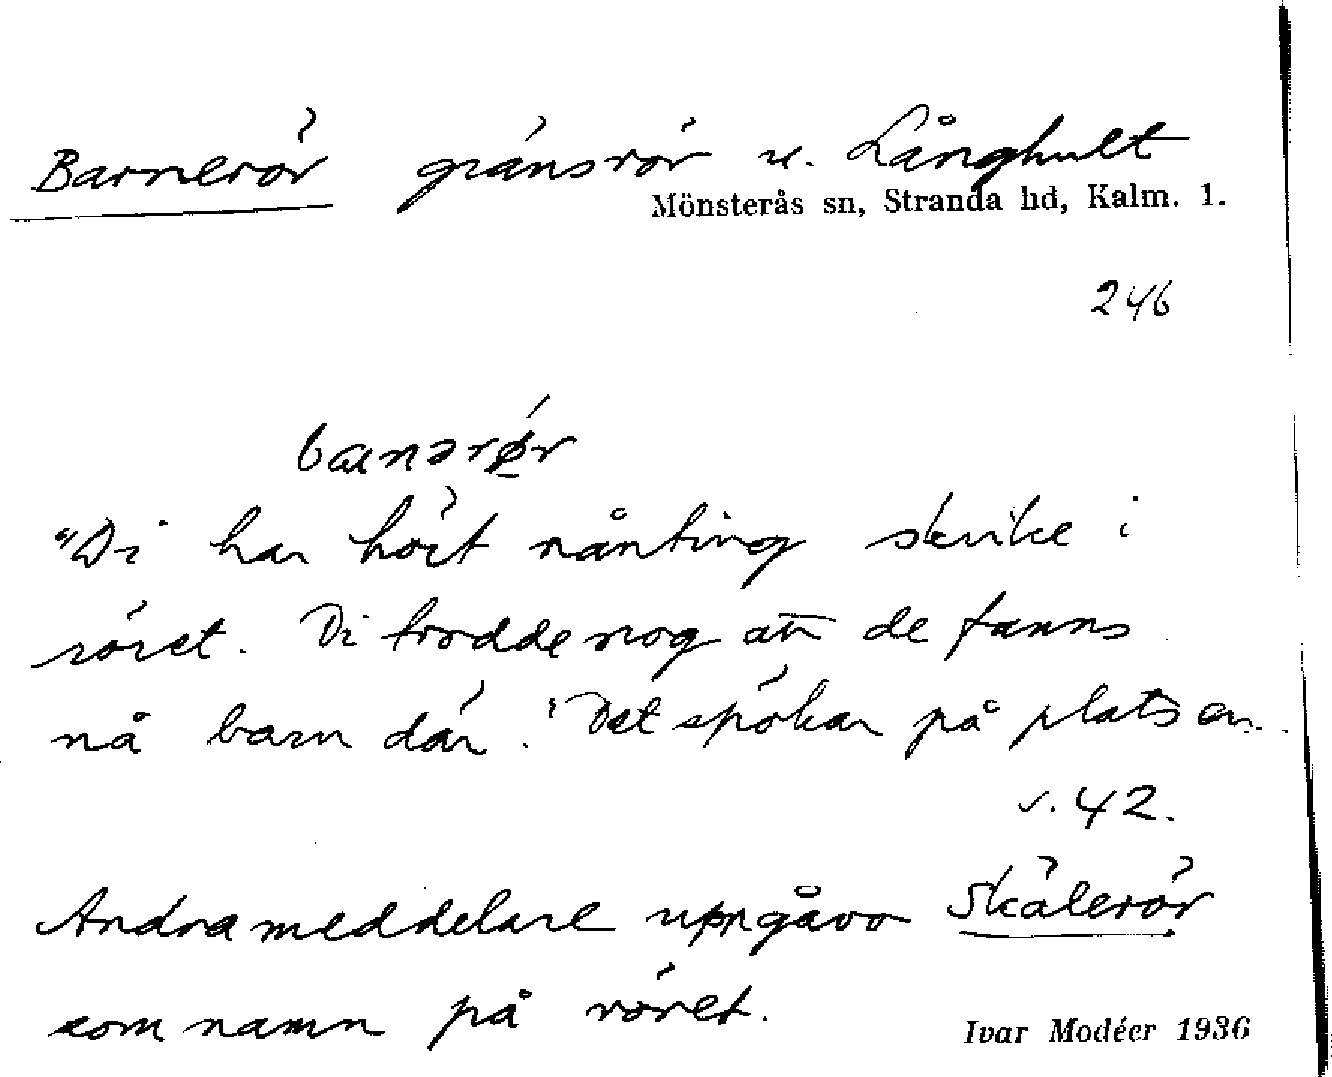 Barnerör gränsrör u. Långhult
Mönsterås sn, Stranda hd, Kalm. l.
246
banərør
"Di har hört nånting skrike i
röret. Di trodde nog att de fanns
nå barn där." Det spökar på platsen.
s. 42.
Andra meddelare uppgåvo Skälerör
som namn på röret.
Ivar Modéer 1936